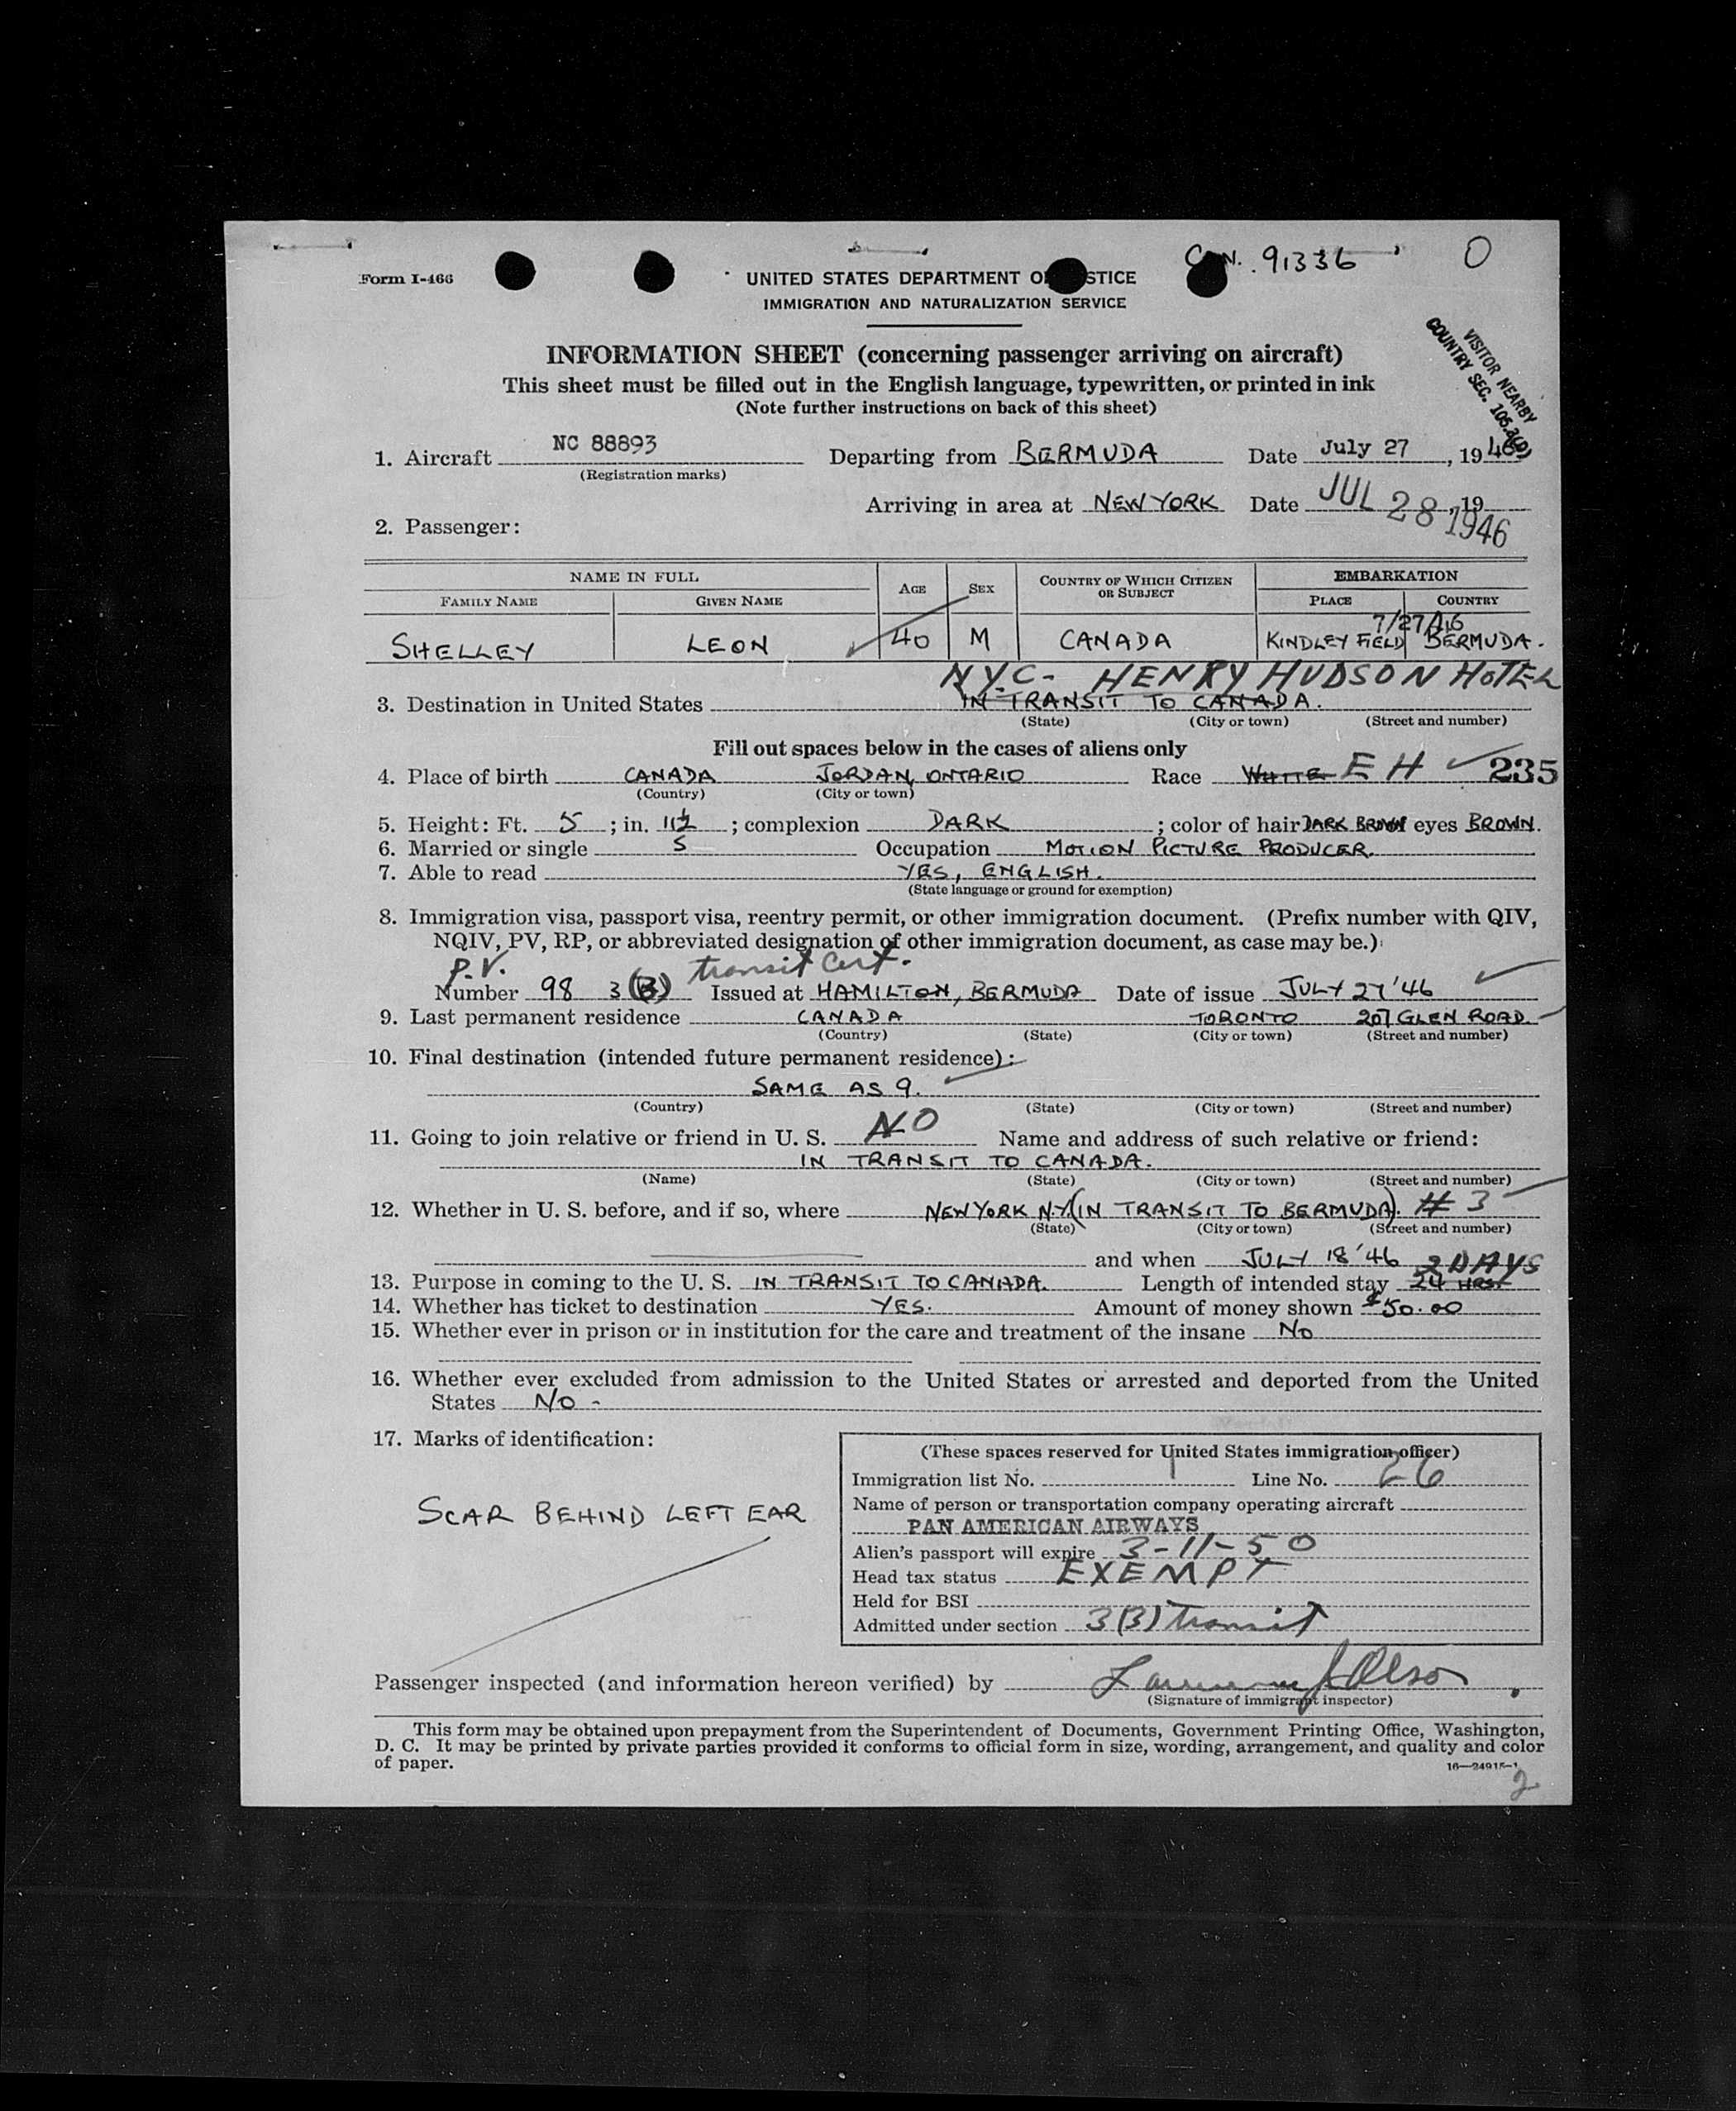 Form I-466
CAN. 91336
0
UNITED STATES DEPARTMENT OF JUSTICE
IMMIGRATION AND NATURALIZATION SERVICE
INFORMATION SHEET (concerning passenger arriving on aircraft)
This sheet must be filled out in the English language, typewritten, or printed in ink
(Note further instructions on back of this sheet)
VISITOR NEARBY
COUNTRY SEC. 106.3(D)
1. Aircraft NC 88893 Departing from BERMUDA Date July 27, 1946
(Registration marks)
Arriving in area at NEW YORK Date JUL 28 1946, 19
2. Passenger:
NAME IN FULL AGE SEX COUNTRY OF WHICH CITIZEN OR SUBJECT EMBARKATION
FAMILY NAME GIVEN NAME PLACE COUNTRY
7/27/46
SHELLEY LEON 40 M CANADA KINDLEY FIELD BERMUDA.
N.Y.C. - HENRY HUDSON HOTEL
3. Destination in United States IN TRANSIT TO CANADA.
(State) (City or town) (Street and number)
Fill out spaces below in the cases of aliens only
4. Place of birth CANADA JORDAN, ONTARIO Race WHITE EH 235
(Country) (City or town)
5. Height: Ft. 5; in. 11½; complexion DARK; color of hair DARK BROWN eyes BROWN.
6. Married or single S Occupation MOTION PICTURE PRODUCER.
7. Able to read YES, ENGLISH.
(State language or ground for exemption)
8. Immigration visa, passport visa, reentry permit, or other immigration document. (Prefix number with QIV,
NQIV, PV, RP, or abbreviated designation of other immigration document, as case may be.)
P.V. transit Cert.
Number 98 3(B) Issued at HAMILTON, BERMUDA Date of issue JULY 27 '46
9. Last permanent residence CANADA TORONTO 207 GLEN ROAD
(Country) (State) (City or town) (Street and number)
10. Final destination (intended future permanent residence):
SAME AS 9.
(Country) (State) (City or town) (Street and number)
11. Going to join relative or friend in U. S. NO Name and address of such relative or friend:
IN TRANSIT TO CANADA.
(Name) (State) (City or town) (Street and number)
12. Whether in U. S. before, and if so, where NEW YORK N.Y. (IN TRANSIT TO BERMUDA). # 3
(State) (City or town) (Street and number)
and when JULY 18 '46
2 DAYS
13. Purpose in coming to the U. S. IN TRANSIT TO CANADA. Length of intended stay 24 HRS.
14. Whether has ticket to destination YES. Amount of money shown $50.00
15. Whether ever in prison or in institution for the care and treatment of the insane No
16. Whether ever excluded from admission to the United States or arrested and deported from the United
States No -
17. Marks of identification:
SCAR BEHIND LEFT EAR
(These spaces reserved for United States immigration officer)
Immigration list No. 1 Line No. 26
Name of person or transportation company operating aircraft
PAN AMERICAN AIRWAYS
Alien's passport will expire 3-11-50
Head tax status EXEMPT
Held for BSI
Admitted under section 3(3) transit
Passenger inspected (and information hereon verified) by
(Signature of immigrant inspector)
This form may be obtained upon prepayment from the Superintendent of Documents, Government Printing Office, Washington,
D. C. It may be printed by private parties provided it conforms to official form in size, wording, arrangement, and quality and color
of paper.
16—24915-1
2